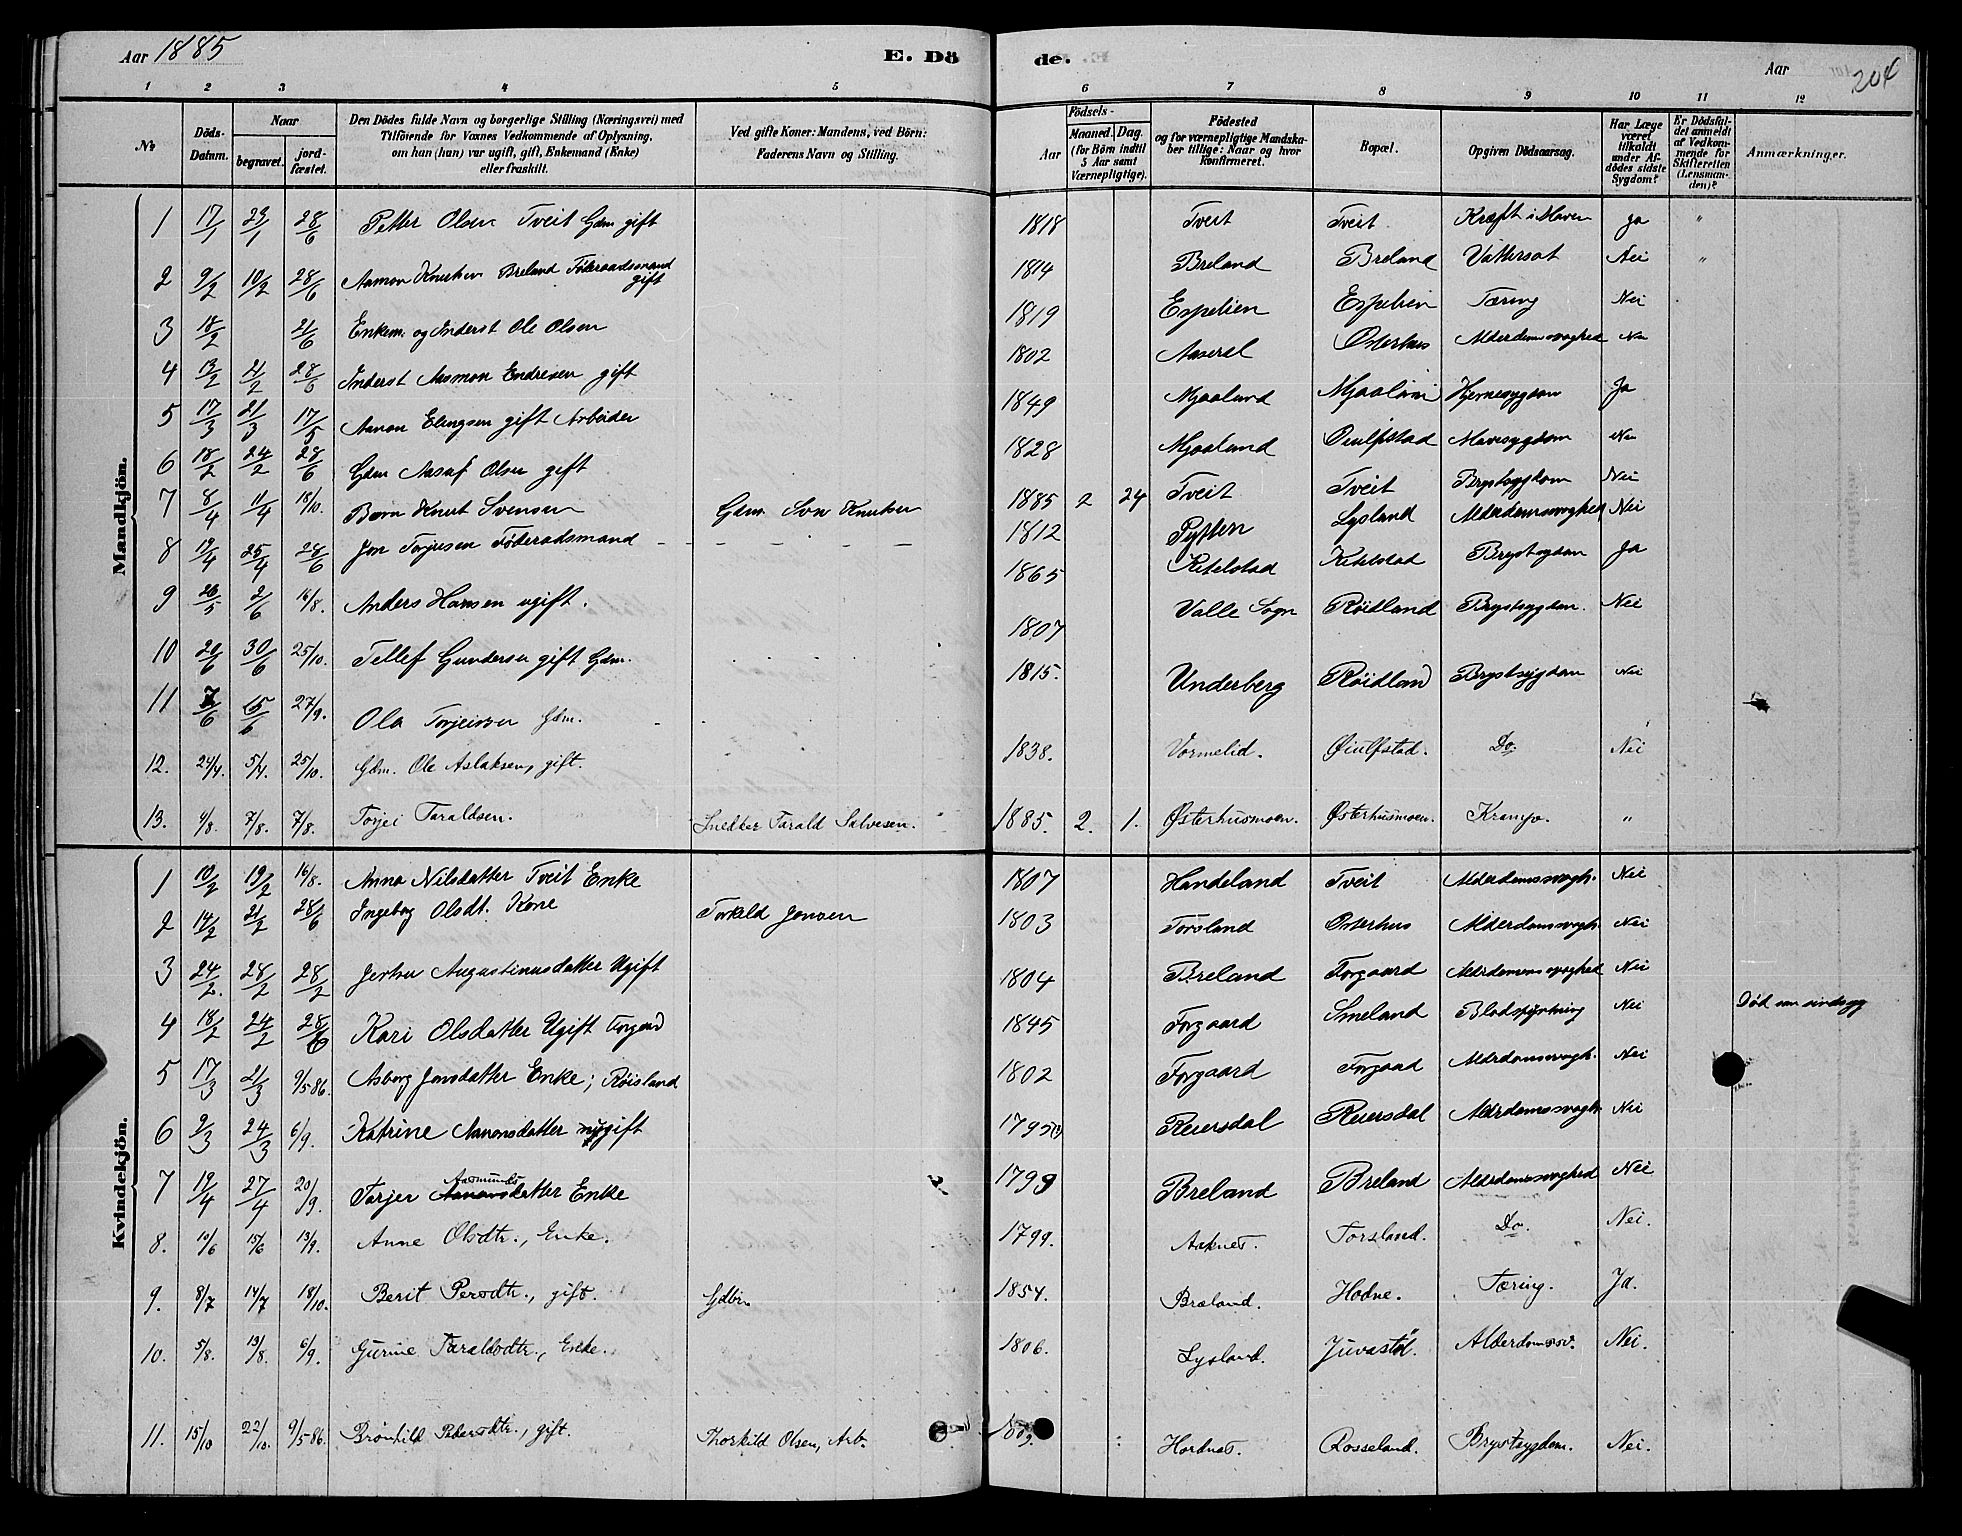 Aar 1885 E. Dö de. Aar 204
1 2 3 4 5 6 7 8 9 10 11 12
No Döds-Datum. Naar begravet. jord-fæstet. Den Dödes fulde Navn og borgerlige Stilling (Næringsvei) med Tilföiende for Voxnes Vedkommende af Oplysning, om han (hun) var ugift, gift, Enkemand (Enke) eller fraskilt. Ved gifte Koner: Mandens, ved Börn: Faderens Navn og Stilling. Födsels- Aar Maaned. Dag. (for Börn indtil 5 Aar samt Værnepligtige). Födested og for værnepligtige Mandskaber tillige: Naar og hvor Konfirmeret. Bopæl. Opgiven Dödsaarsag. Har Læge været tilkaldt under Afdödes sidste Sygdom? Er Dödsfaldet anmeldt af Vedkommende for Skifteretten (Lensmanden)? Anmærkninger.
Mandkjön.
1 17/1 29/1 28/6 Petter Olsen Tveit Gdm gift 1818 Tveit Tveit Kræft i Maven Ja "
2 9/2 10/2 28/6 Aamon Knutsen Breland Föderaadsmand gift 1814 Breland Breland Vattersot Nei "
3 18/2 21/6 Enkem. og Inderst Ole Olsen 1819 Espelien Espelien Tæring Nei
4 13/2 21/2 28/6 Inderst Aamon Endresen gift 1802 Aaseral Østerhus Alderdomssvaghed Nei
5 17/3 21/3 17/5 Aanon Elingsen gift Arbeider 1849 Mjaaland Mjaaland Hjernesygdom Ja
6 18/2 24/2 28/6 Gdm Aasuf Olsen gift 1828 Mjaaland Øiulfstad Mavesygdom Nei
7 8/4 11/4 18/10. Barn Knut Svensen Gdm. Sven Knutsen 1885 2 24 Tveit Tveit Brystsygdom Nei
8 19/4 25/4 28/6 Jon Torjusen Föderadsmand 1812 Pytten Lysland Alderdomssvaghed Nei
9 26/5 2/6 16/8. Anders Hansen ugift. 1865 Ketelstad Ketelstad Brystsygdom Ja
10 20/6 30/6 25/10. Tellef Gundersen gift Gdm. 1807 Valle Sogn Röidland Brystsygdom. Nei
11 7/6 15/6 27/9. Ola Torjeissen Gdm. 1815. Underberg Röidland Brystsygdom Nei
12. 24/4. 5/4. 25/10. Gdm. Ole Aslaksen, gift. 1838. Vormelid. Øiulfstad. Do. Nei
13. 4/8. 7/8. 7/8. Torjei Taraldsen. Snedker Tarald Salvesen. 1885. 2. 1. Østerhusmoen. Østerhusmoen. Krampe. "
Kvindekjön.
1 10/2 19/2 16/8. Anna Nilsdatter Tveit Enke 1807 Handeland Tveit Alderdomssvagh. Nei
2 14/2 21/2 28/6 Ingeborg Olsdt. Kone Torkild Jonsen 1803 Torsland Osterhus Alderdomssvagh. Nei
3 24/2. 28/2 28/2 Augustinusdatter Ugift 1804 Breland Forgaard Alderdomssvaghed Nei
4 18/2 24/2 28/6 Kari Olsdatter Ugift Forgaard 1845 Forgaard Smeland Blodstyrtning Nei Död som sindssyg
5 17/3 21/3 9/5 86. Asborg Jonsdatter Enke; Röisland 1802 Forgaard Forgaard Alderdomssvagh. Nei
6 2/3 24/3 6/9. Katrine Aanonsdatter ugift 1795 Reiersdal Reiersdal Alderdomssvagh Nei
7 19/4 27/4 20/9. Torjer Aasmunds Aanonsdatter Enke 1799 Breland Breland Alderdomssvaghed Nei
8. 10/6 15/6 13/9. Anne Olsdtr., Enke. 1799. Aaknes. Torsland. Do. Nei.
9. 8/7 14/7 18/10. Berit Persdtr., gift. 1854. Breland. Hodne. Tæring. Ja.
10. 5/8. 13/8. 6/9. Gurine Taraldsdtr., Enke. 1806. Lysland. Juvastöl. Alderdomssv. Nei.
11. 15/10 22/10. 9/5 86. Brönhild Pedersdtr., gift. Thorkild Olsen, Arb. Hordnes. Rosseland. Brystsygdom. Nei.